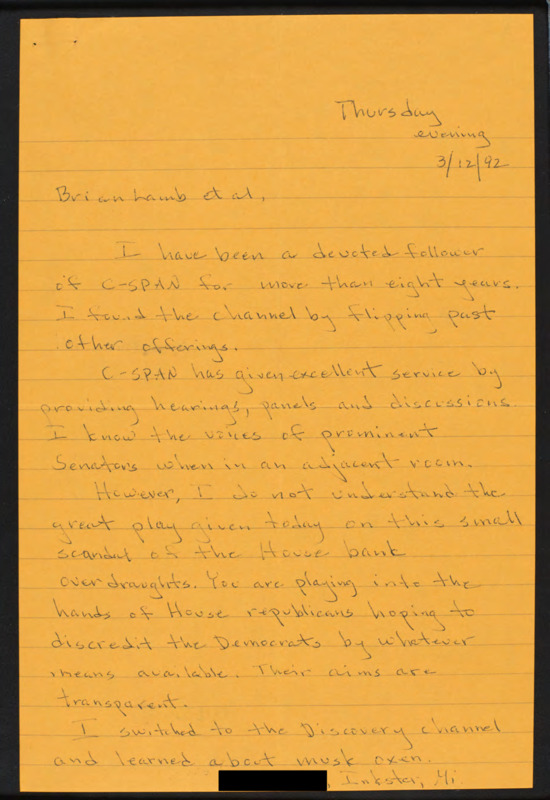 Thursday
evening
3/12/92
Brian Lamb et al,
I have been a devoted follower
of C-SPAN for more than eight years.
I found the channel by flipping past
other offerings.
C-SPAN has given excellent service by
providing hearings, panels and discussions.
I know the voices of prominent
Senators when in an adjacent room.
However, I do not understand the
great play given today on this small
scandal of the House bank
overdraughts. You are playing into the
hands of House republicans hoping to
discredit the Democrats by whatever
means available. Their aims are
transparent.
I switched to the Discovery channel
and learned about musk oxen.
, Inkster, Mi.